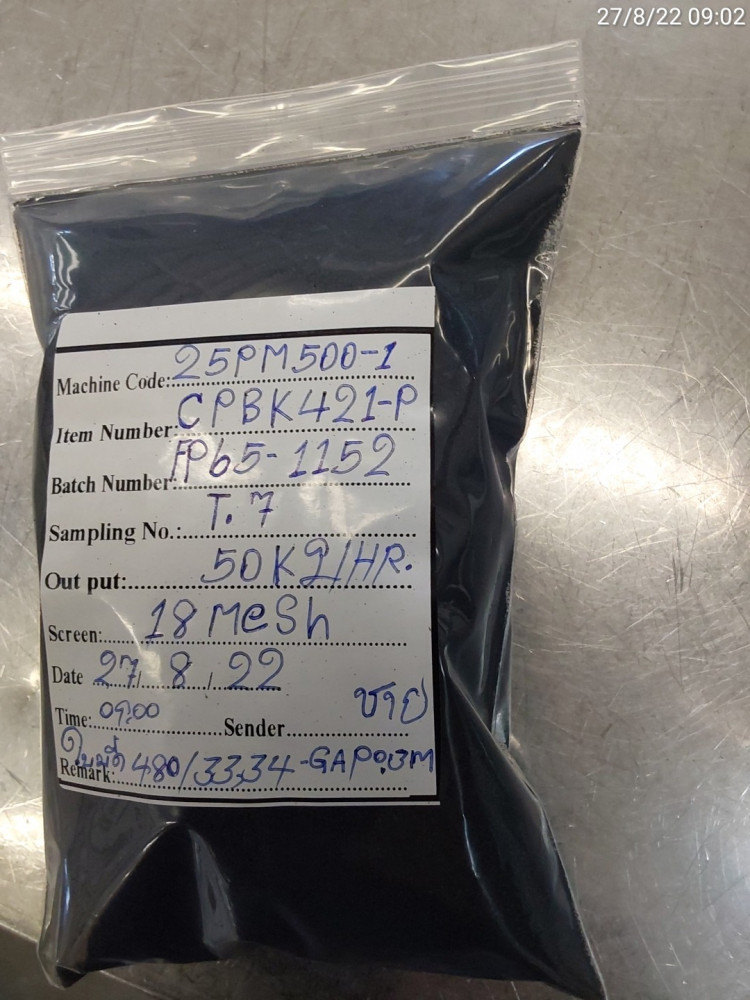 27/8/22 09:02
Machine Code: 25PM500-1
Item Number: CPBK421-P
Batch Number: FP65-1152
Sampling No.: T.7
Out put: 50Kg/HR.
Screen: 18 MeSh
Date 27/8/22
Time: 09:00 Sender ชาย
Remark: ใบมีด 480/33,34-GAP 0.3M